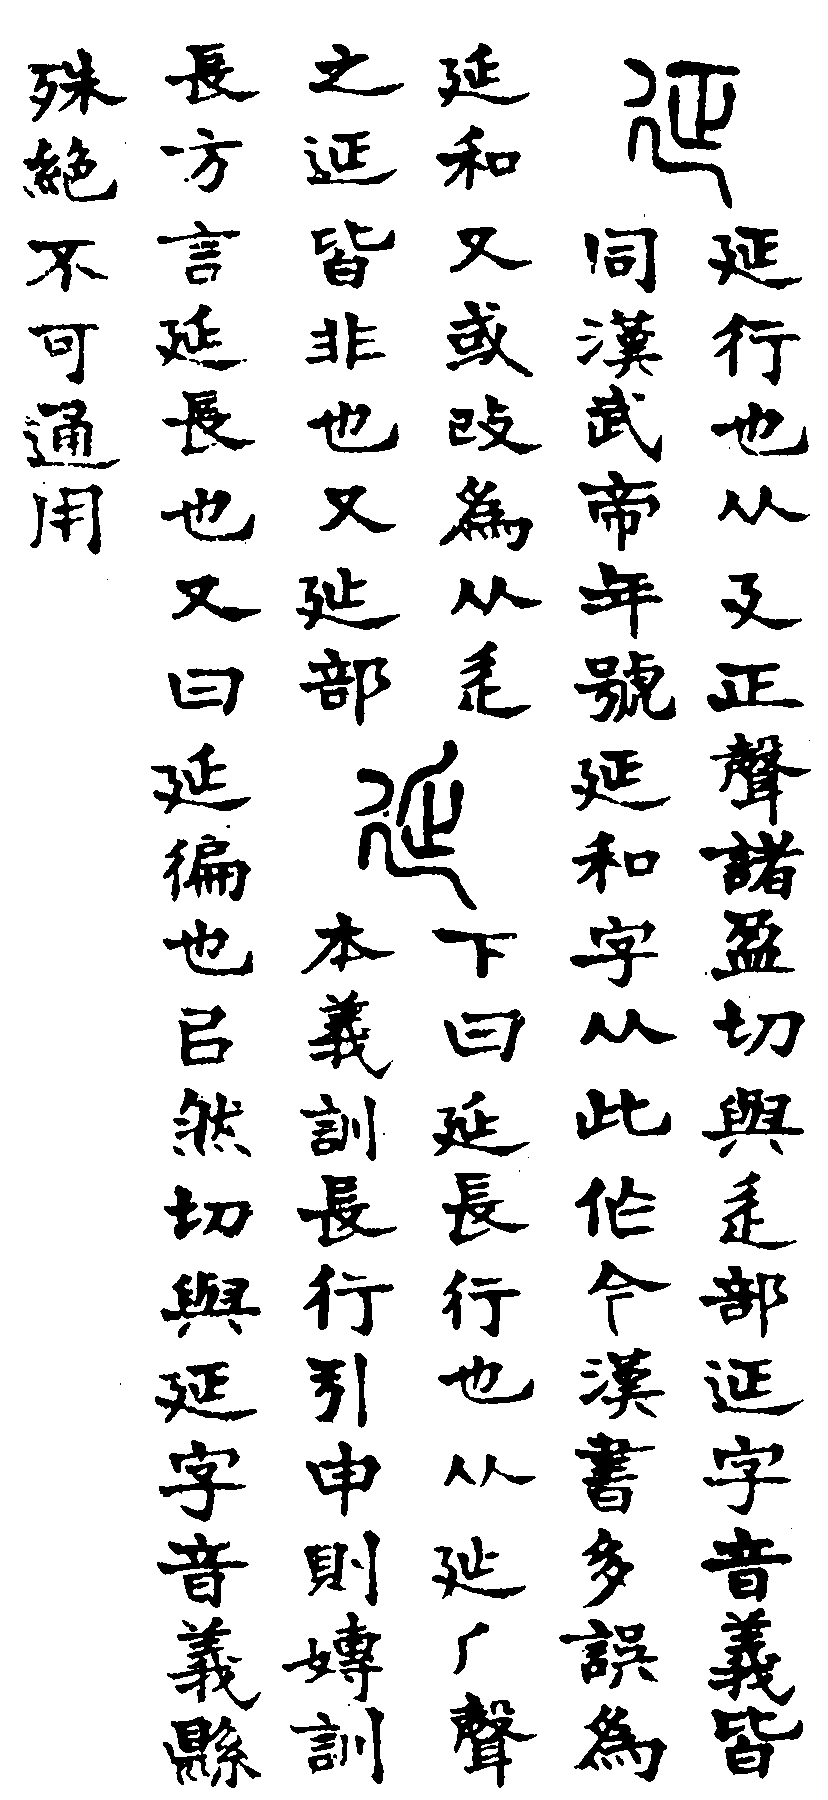 𢌛
𢌛行也从廴正聲諸盈切與辵部𨒌字音義皆
同漢武帝年號𢌛和字从此作今漢書多誤為
延和又或改為从辵
之𨒌皆非也又㢟部
延
下曰延長行也从㢟厂聲
本義訓長行引申則嫥訓
長方言延長也又曰延徧也㠯然切與𢌛字音義縣
殊絕不可通用